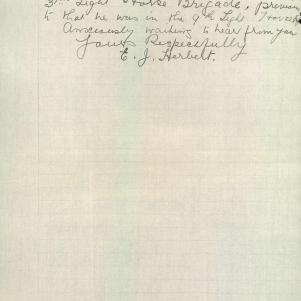 3rd Light Horse Brigade, previous
to that he was in the 9th Light Horse
Anxiously waiting to hear from you
Yours Respectfully
E. J. Herbert.